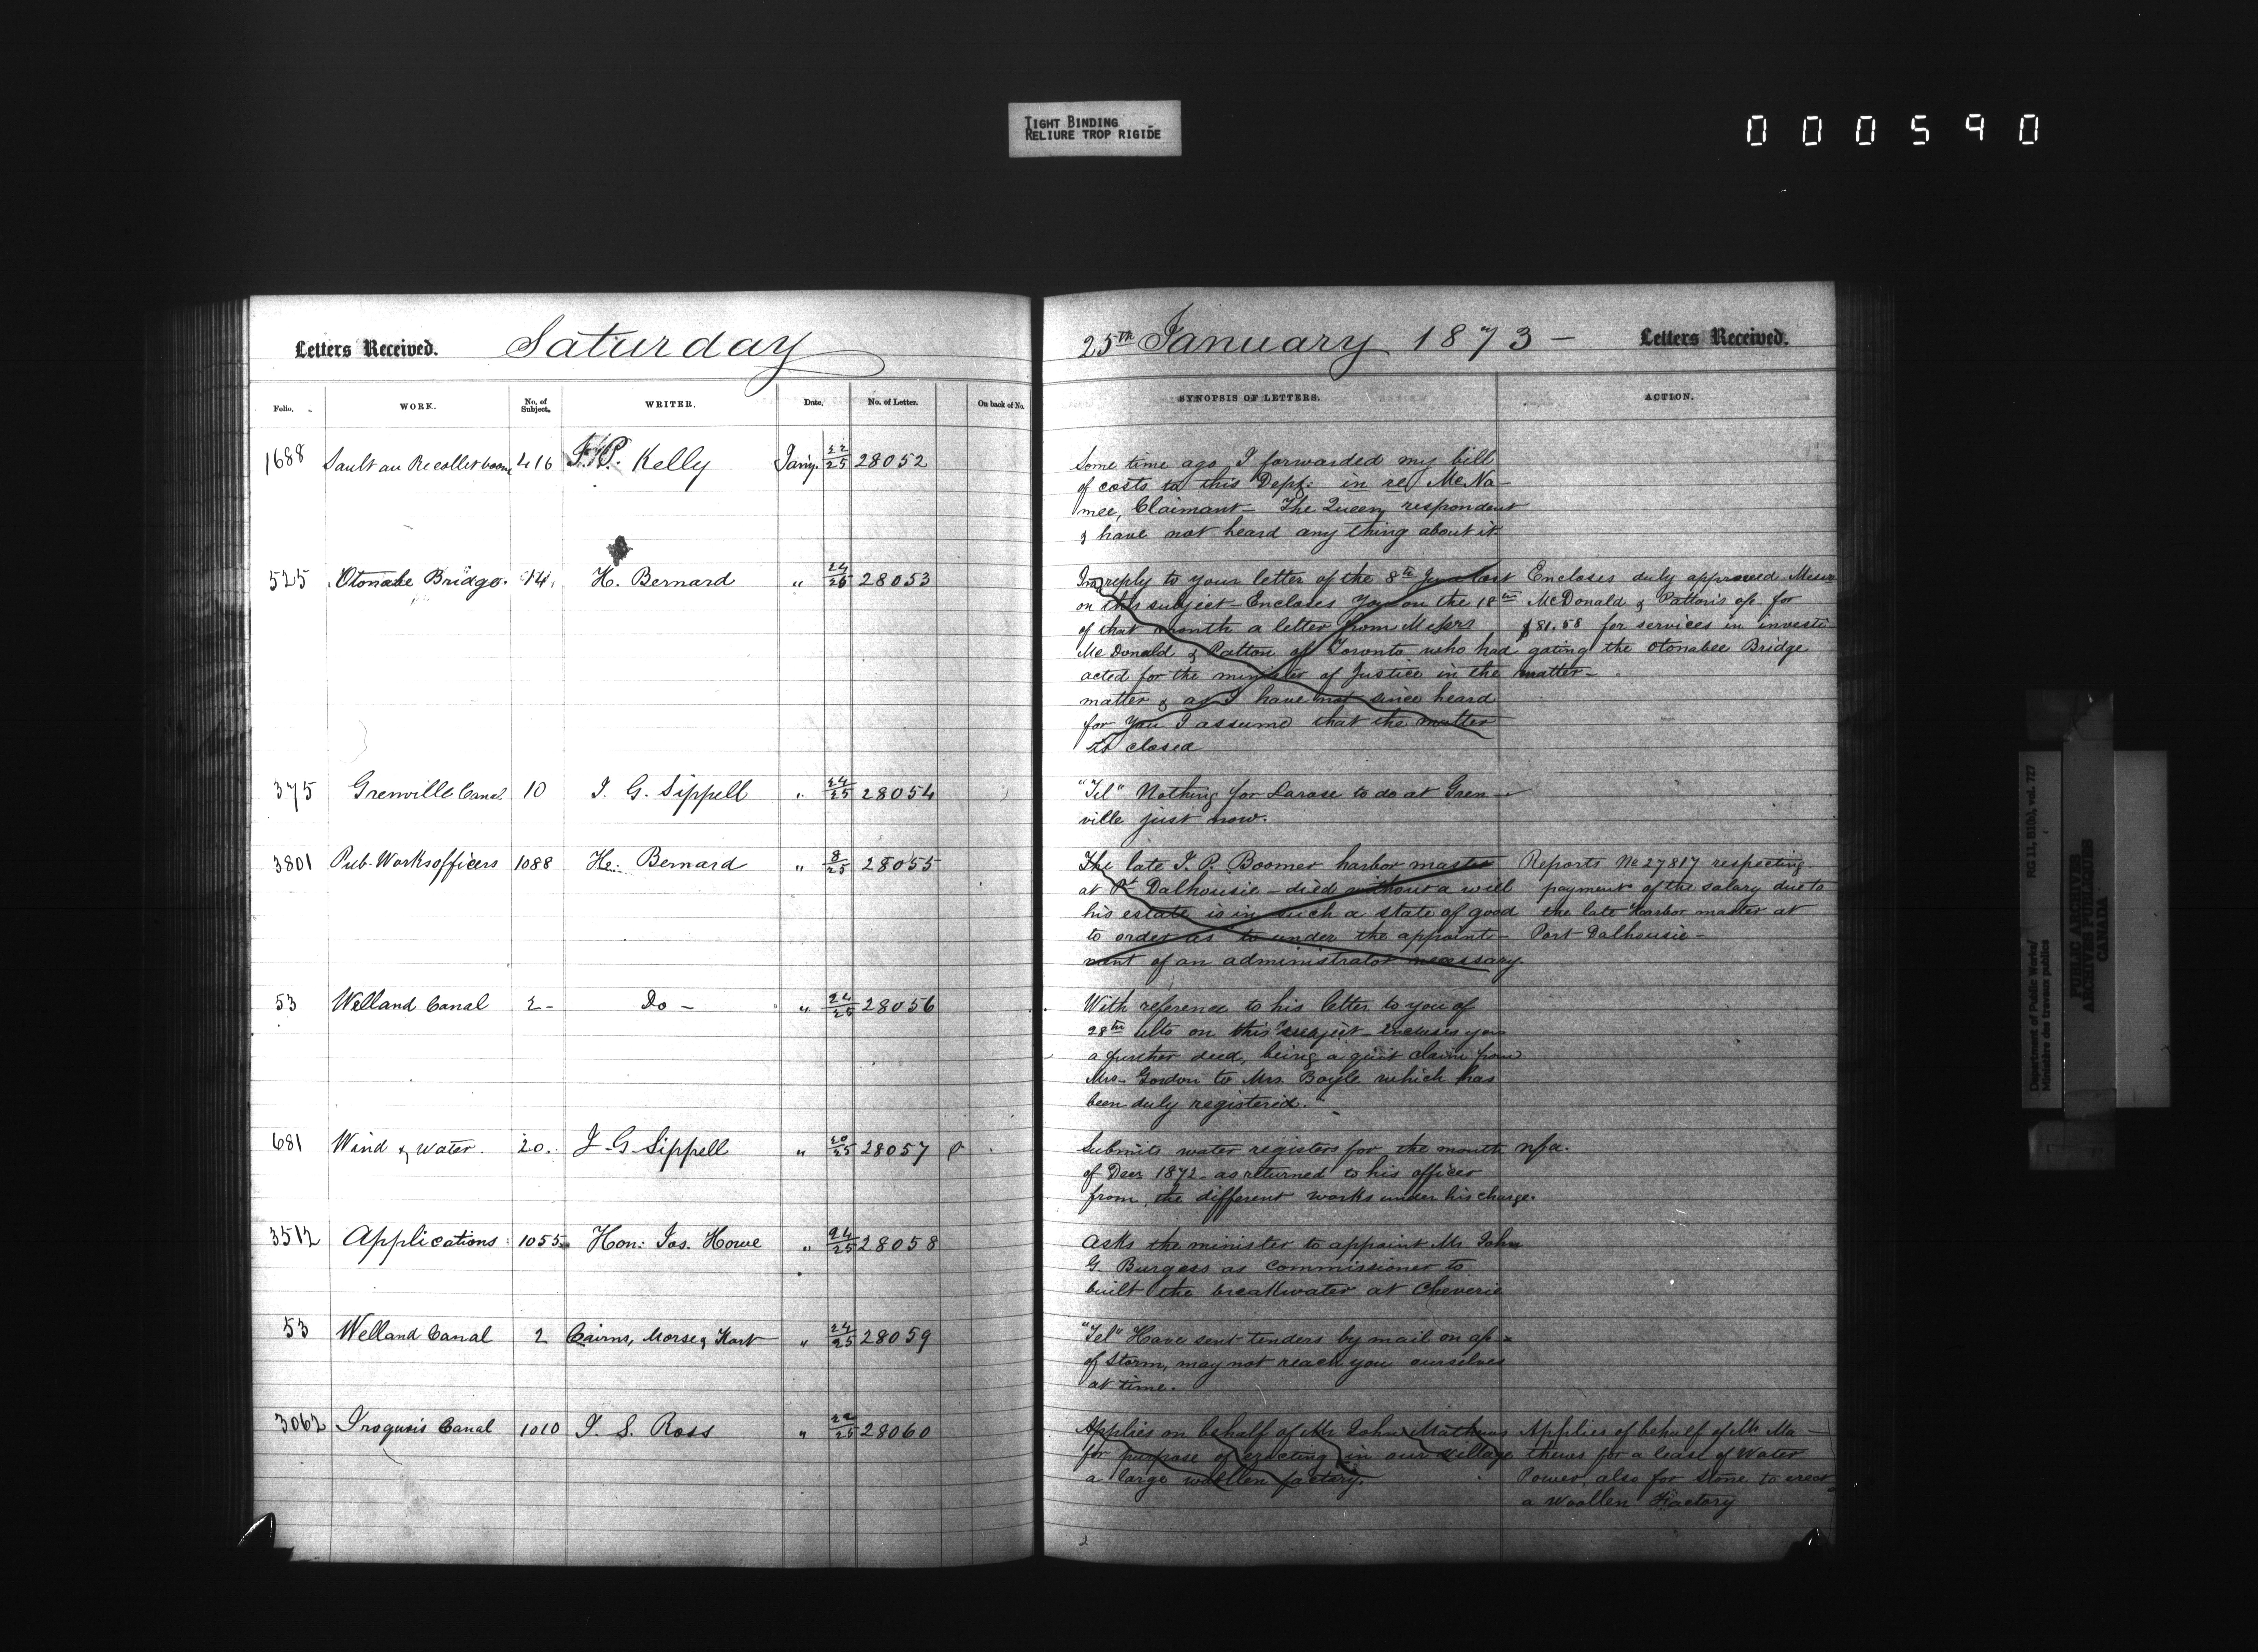 TIGHT BINDING
RELIURE TROP RIGIDE
000590
Letters Received. Saturday
Folio. WORK. No. of Subject. WRITER. Date. No. of Letter. On back of No.
1688 Sault au Recollet boom 416 Kelly Jan'y. 22/25 28052
525 Otonabee Bridge. 14. H. Bernard " 24/25 28053
375 Grenville Canal 10 J. G. Sippell " 24/25 28054
3801 Pub. Works officers 1088 H. Bernard " 8/25 28055
53 Welland Canal 2 - Do - " 24/25 28056
681 Wind & Water. 20. J. G. Sippell " 20/25 28057
3512 Applications 1055 Hon: Jos. Howe " 24/25 28058
53 Welland Canal 2 Cairns, Morse & Hart " 24/25 28059
3062 Iroquois Canal 1010 J. S. Ross " 22/25 28060
25th January 1873 - Letters Received.
SYNOPSIS OF LETTERS. ACTION.
Some time ago I forwarded my bill
of costs to this Dept: in re McNa-
mee, Claimant - The Queen, respondent
& have not heard any thing about it
In reply to your letter of the 8th last
on this subject - Encloses You on the 18th
of that month a letter from Messrs
McDonald & Patton of Toronto who had
acted for the minister of Justice in the
matter & as I have not since heard
for You I assume that the matter
is closed
Encloses duly approved Messrs
McDonald & Patton's a/c for
$81.58 for services in investi-
gating the Otonabee Bridge
matter -
"Tel" Nothing for Larose to do at Gren-
ville just now.
The late J. P. Boomer harbor master
at Pt Dalhousie - died without a will
his estate is in such a state of good
to order as to under the appoint-
ment of an administrator necessary.
Reports No 27817 respecting
payment of the salary due to
the late Harbor master at
Port Dalhousie -
With reference to his letter to you of
28th ulto on this subject - encloses you
a further deed, being a quit claim from
Mrs. Gordon to Mrs. Boyle which has
been duly registered.
Submits water registers for the month
of Decr 1872 - as returned to his officer
from the different works under his charge.
nfa.
Asks the minister to appoint Mr John
G. Burgess as Commissioner to
built the breakwater at Cheverie
"Tel" Have sent tenders by mail on a/c
of Storm, may not reach you ourselves
at time.
Applies on behalf of Mr John Mathews
for purpose of erecting in our village
a large woollen factory.
Applies of behalf of Mr Ma-
thews for a lease of Water
Power, also for Stone to erect
a Woollen Factory
2
Department of Public Works/
Ministère des travaux publics
RG 11, B1(b), vol. 727
PUBLIC ARCHIVES
ARCHIVES PUBLIQUES
CANADA